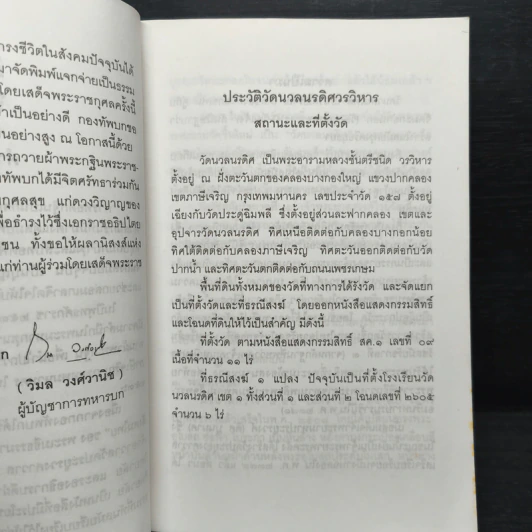 ารงชีวิตในสังคมปัจจุบันได้
มาจัดพิมพ์แจกจ่ายเป็นธรรม
โดยเสด็จพระราชกุศลครั้งนี้
้าเป็นอย่างดี กองทัพบกขอ
ป็นอย่างสูง ณ โอกาสนี้ด้วย
ารถวายผ้าพระกฐินพระราช-
งทัพบกได้มีจิตศรัทธาร่วมกัน
กุศลสุข แก่ดวงวิญญาณของ
พื่อธำรงไว้ซึ่งเอกราชอธิปไตย
ชน ทั้งขอให้ผลานิสงส์แห่ง
แก่ท่านผู้ร่วมโดยเสด็จพระราช
( วิมล วงศ์วานิช )
ผู้บัญชาการทหารบก
ประวัติวัดนวลนรดิศวรวิหาร
สถานะและที่ตั้งวัด
วัดนวลนรดิศ เป็นพระอารามหลวงชั้นตรีชนิด วรวิหาร
ตั้งอยู่ ณ ฝั่งตะวันตกของคลองบางกองใหญ่ แขวงปากคลอง
เขตภาษีเจริญ กรุงเทพมหานคร เลขประจำวัด ๑๕๗ ตั้งอยู่
เฉียงกับวัดประดู่ฉิมพลี ซึ่งตั้งอยู่ส่วนละฟากคลอง เขตและ
อุปจารวัดนวลนรดิศ ทิศเหนือติดต่อกับคลองบางกอกน้อย
ทิศใต้ติดต่อกับคลองภาษีเจริญ ทิศตะวันออกติดต่อกับวัด
ปากน้ำ และทิศตะวันตกติดต่อกับถนนเพชรเกษม
พื้นที่ดินทั้งหมดของวัดที่ทางการได้รังวัด และจัดแยก
เป็นที่ตั้งวัดและที่ธรณีสงฆ์ โดยออกหนังสือแสดงกรรมสิทธิ์
และโฉนดที่ดินให้ไว้เป็นสำคัญ มีดังนี้
ที่ตั้งวัด ตามหนังสือแสดงกรรมสิทธิ์ สค.๑ เลขที่ ๐๙
เนื้อที่จำนวน ๑๑ ไร่
ที่ธรณีสงฆ์ ๑ แปลง ปัจจุบันเป็นที่ตั้งโรงเรียนวัด
นวลนรดิศ เขต ๑ ทั้งส่วนที่ ๑ และส่วนที่ ๒ โฉนดเลขที่ ๒๖๐๕
จำนวน ๖ ไร่